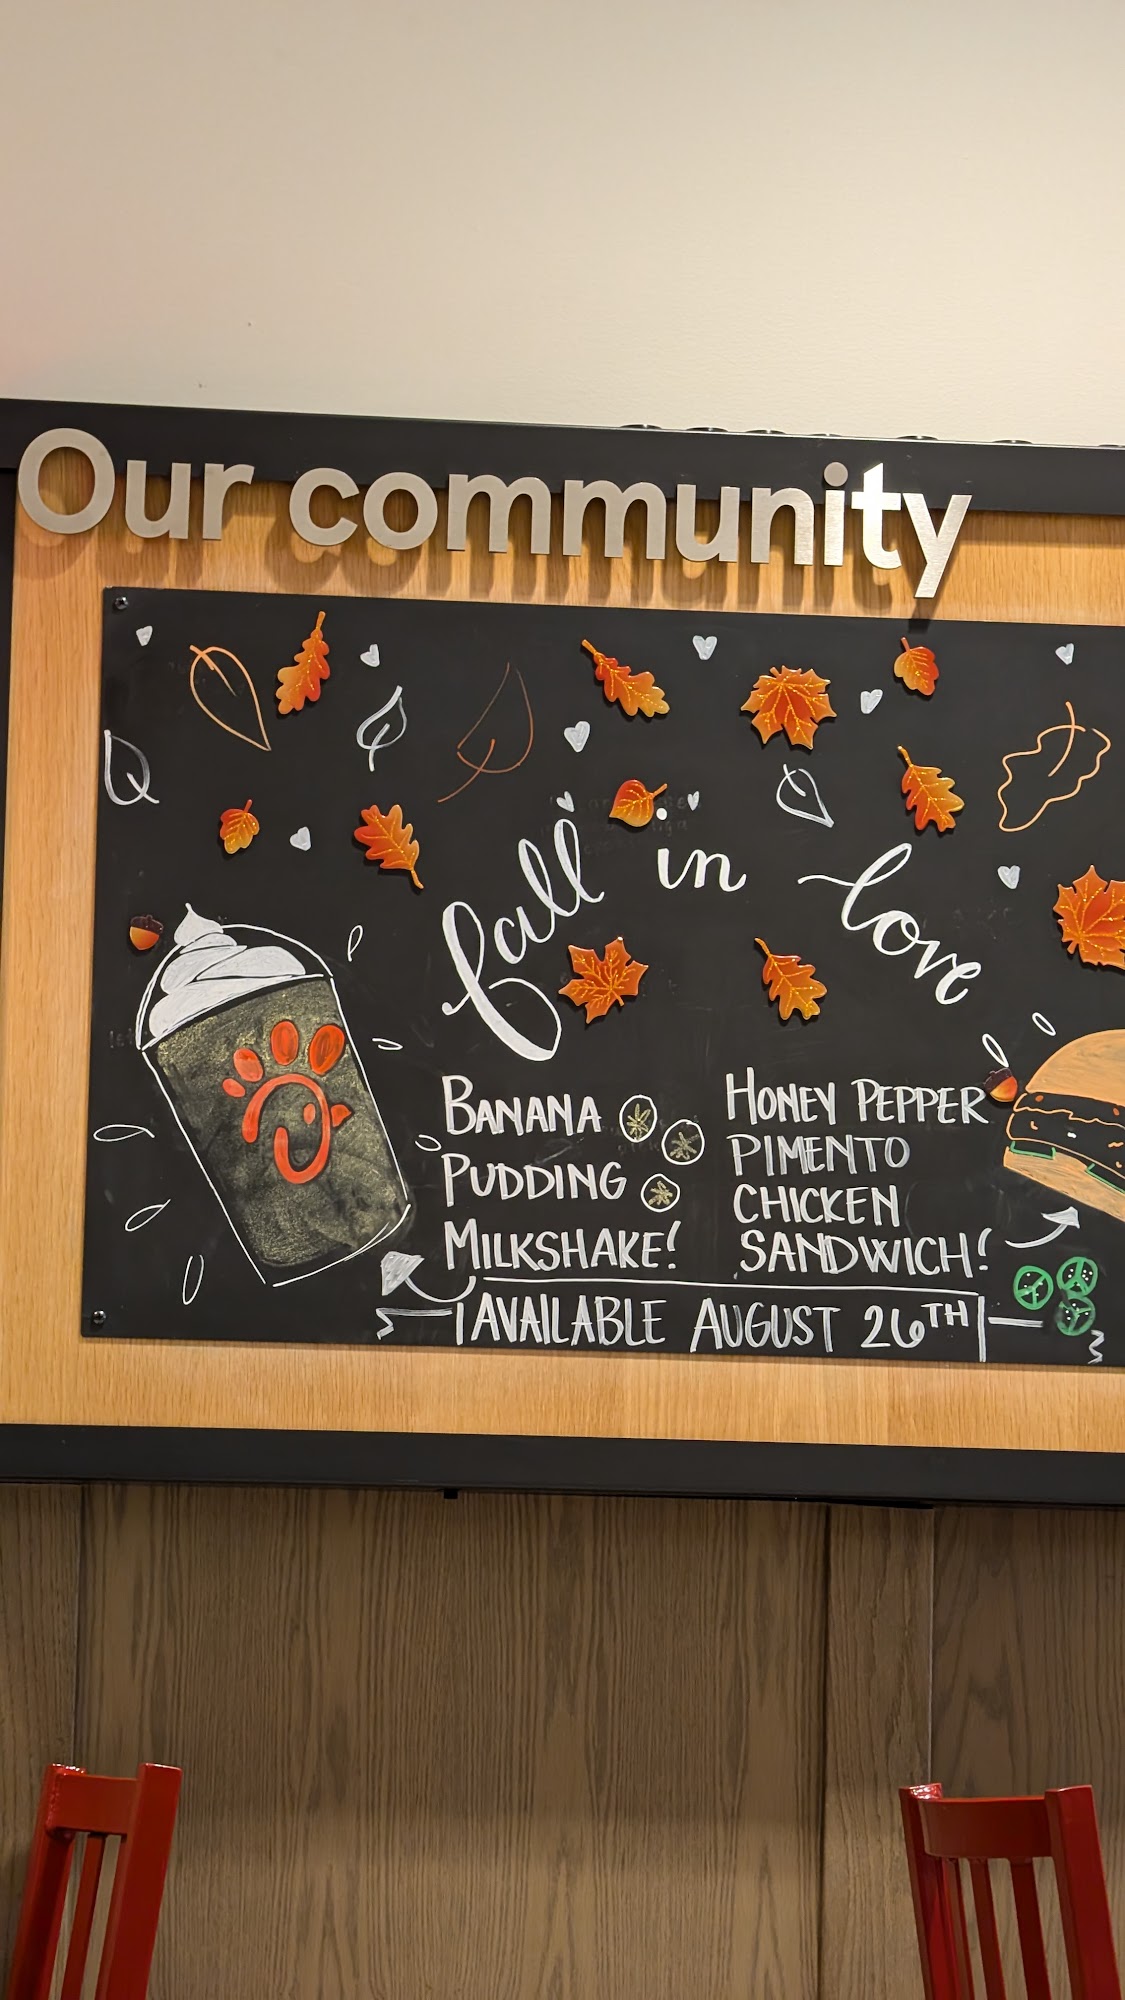 Our community
fall in love
BANANA
PUDDING
MILKSHAKE!
HONEY PEPPER
PIMENTO
CHICKEN
SANDWICH!
AVAILABLE AUGUST 26TH